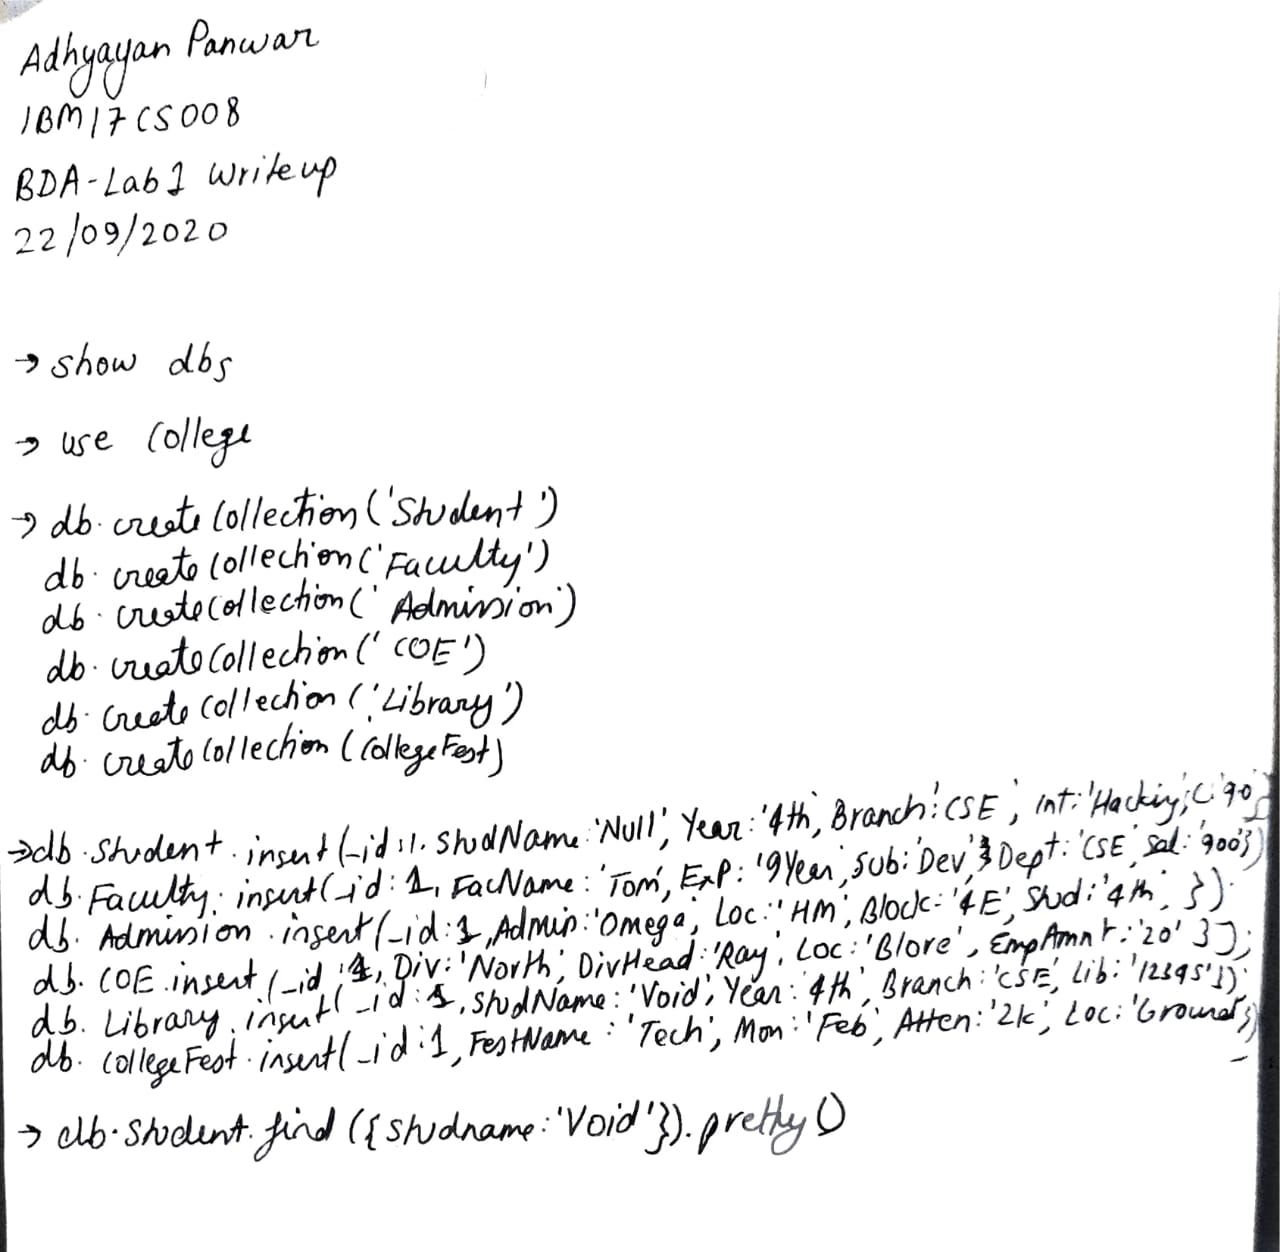 Adhyayan Panwar
1BM17CS008
BDA-Lab 1 Writeup
22/09/2020
→ show dbs
→ use College
→ db.createCollection('Student')
db.createCollection('Faculty')
db.createCollection('Admission')
db.createCollection('COE')
db.createCollection('Library')
db.createCollection(CollegeFest)
→ db.Student.insert(_id:1, StudName:'Null', Year:'4th', Branch:'CSE', Int:'Hacking', C:'90
db.Faculty.insert(_id:1, FacName:'Tom', Exp:'9Year', Sub:'Dev', Dept:'CSE', Sal:'900'})
db.Admission.insert(_id:1, Admin:'Omega', Loc:'HM', Block:'4E', Stud:'4th', });
db.COE.insert(_id:1, Div:'North', DivHead:'Ray', Loc:'Blore', EmpAmnt:'20'});
db.Library.insert(_id:1, StudName:'Void', Year:'4th', Branch:'CSE', Lib:'12345'});
db.CollegeFest.insert(_id:1, FestName:'Tech', Mon:'Feb', Atten:'2k', Loc:'Ground'})
→ db.Student.find({studname:'Void'}).pretty()